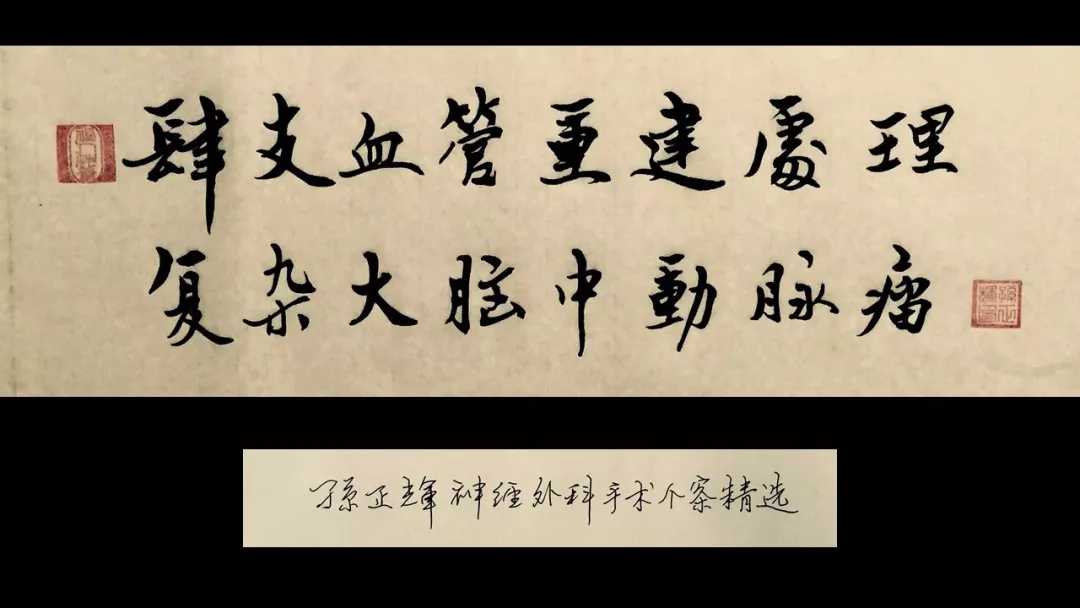 肆支血管重建處理
复杂大脑中動脉瘤
孫正輝神经外科手术个案精选